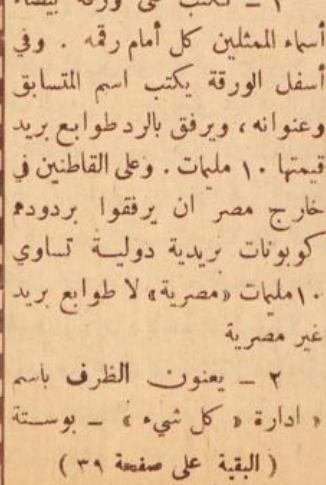 ١ ــ تكتب على ورقة بيضاء
أسماء الممثلين كل أمام رقمه . وفي
أسفل الورقة يكتب اسم المتسابق
وعنوانه ، ويرفق بالرد طوابع بريد
قيمتها ١٠ مليمات . وعلى القاطنين في
خارج مصر ان يرفقوا بردودهم
كوبونات بريدية دولية تساوي
١٠ مليمات «مصرية» لا طوابع بريد
غير مصرية
٢ ــ يعنون الظرف باسم
« ادارة « كل شيء » ــ بوستة
( البقية على صفحة ٣٩ )